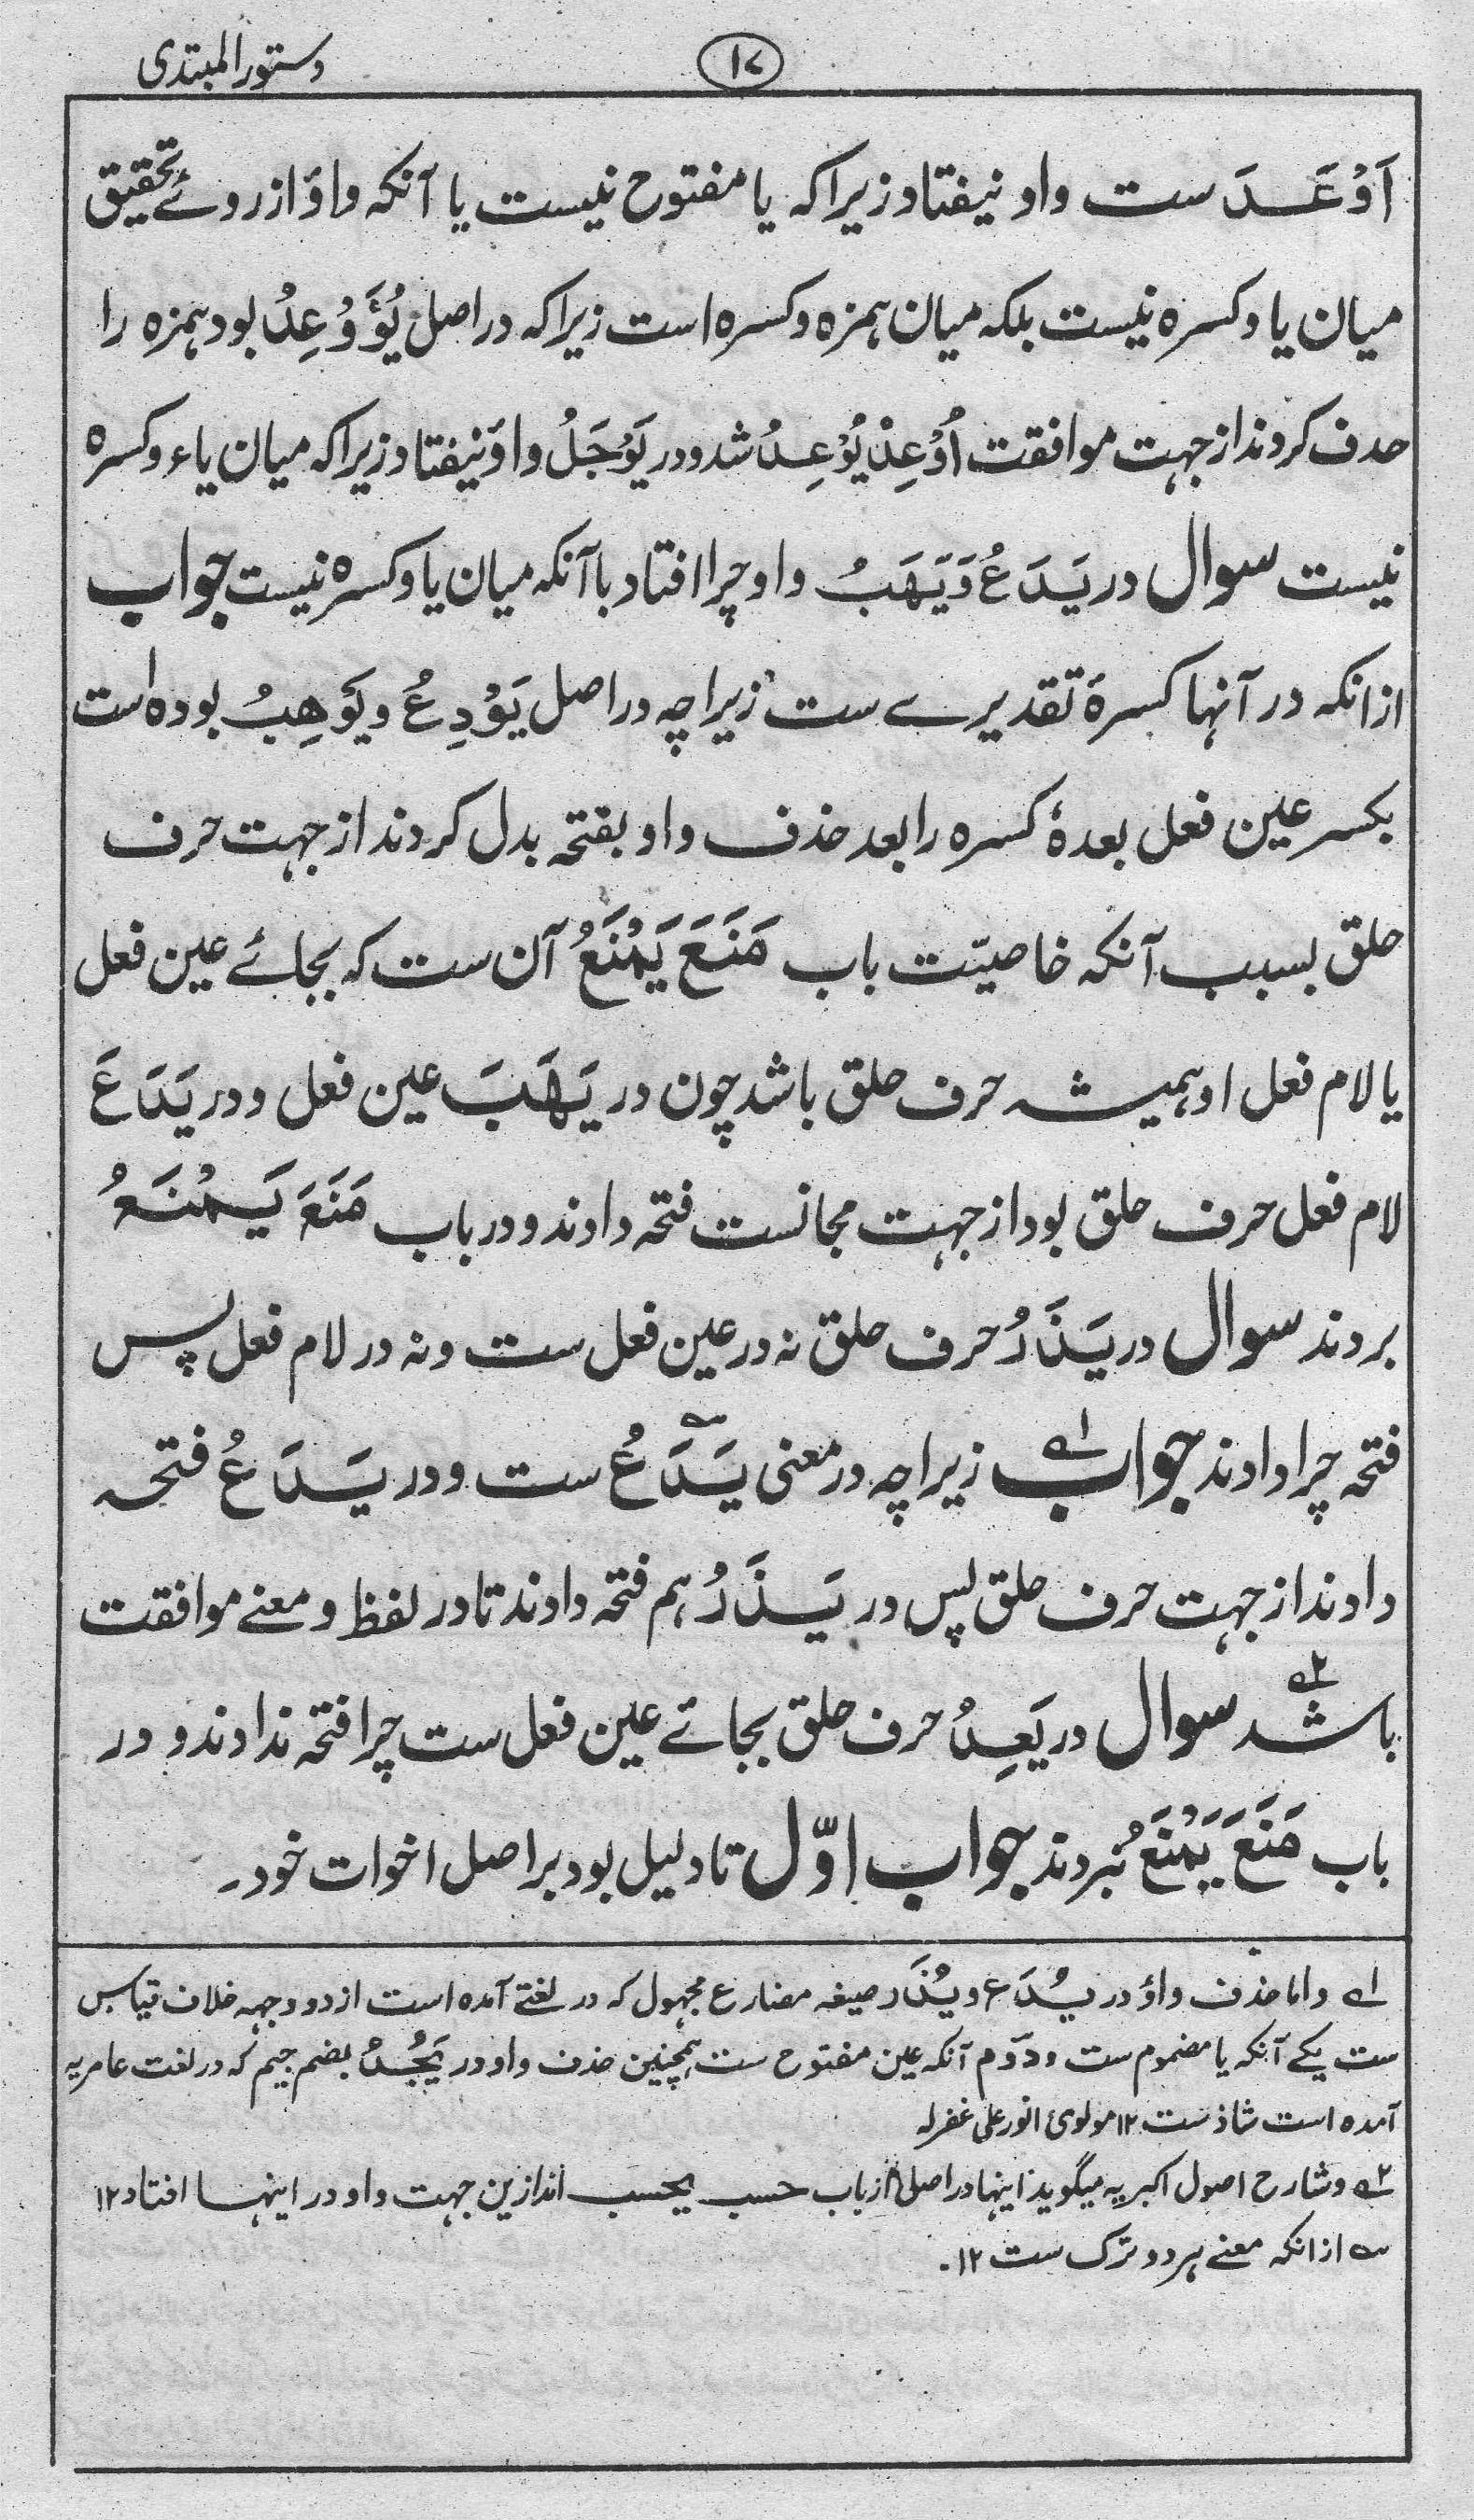 دستورالمبتدی
۱۷
اَوْعَدَ ست واو نیفتاد زیراکہ یا مفتوح نیست یا آنکہ واؤ از روئے تحقیق
میان یا وکسرہ نیست بلکہ میان ہمزہ وکسرہ است زیراکہ در اصل یُؤَوْعِدُ بود ہمزہ را
حذف کردند از جہت موافقت اُوْعِدُ یُوْعِدُ شد و در یَوْجَلُ واو نیفتاد زیراکہ میان یاء وکسرہ
نیست سوال در یَدَعُ وَیَهَبُ واو چرا افتاد با آنکہ میان یا وکسرہ نیست جواب
ازانکہ در آنہا کسرۂ تقدیرے ست زیراچہ در اصل یَوْدِعُ و یَوْهِبُ بودہ است
بکسر عین فعل بعدہٗ کسرہ را بعد حذف واو بفتحہ بدل کردند از جہت حرف
حلق بسبب آنکہ خاصیّت باب مَنَعَ یَمْنَعُ آن ست کہ بجائے عین فعل
یا لام فعل او ہمیشہ حرف حلق باشد چون در یَهَبَ عین فعل و در یَدَعَ
لام فعل حرف حلق بود از جہت مجانست فتحہ دادند و در باب مَنَعَ یَمْنَعُ
بردند سوال در یَذَرُ حرف حلق نہ در عین فعل ست و نہ در لام فعل پس
فتحہ چرا دادند جواب ۱؎ زیراچہ در معنی یَدَعُ ۳؎ ست و در یَدَعُ فتحہ
دادند از جہت حرف حلق پس در یَذَرُ ہم فتحہ دادند تا در لفظ و معنے موافقت
باشد ۲؎ سوال در یَعِدُ حرف حلق بجائے عین فعل ست چرا فتحہ ندادند و در
باب مَنَعَ یَمْنَعُ نبردند جواب اوّل تا دلیل بود بر اصل اخوات خود۔
۱؎ و اما حذف واؤ در یُدَع و یُذَر صیغہ مضارع مجہول کہ در لغتے آمدہ است از دو وجہہ خلاف قیاس
ست یکے آنکہ یا مضموم ست و دوّم آنکہ عین مفتوح ست ہمچنین حذف واو در یَجُدُ بضم جیم کہ در لغت عامریہ
آمدہ است شاذ ست ۱۲ مولوی انور علی غفرلہ
۲؎ و شارح اصول اکبریہ میگوید اینہا در اصل از باب حسب یحسب اند ازین جہت واو در اینہا افتاد ۱۲
۳؎ ازانکہ معنے ہر دو ترک ست ۱۲۔